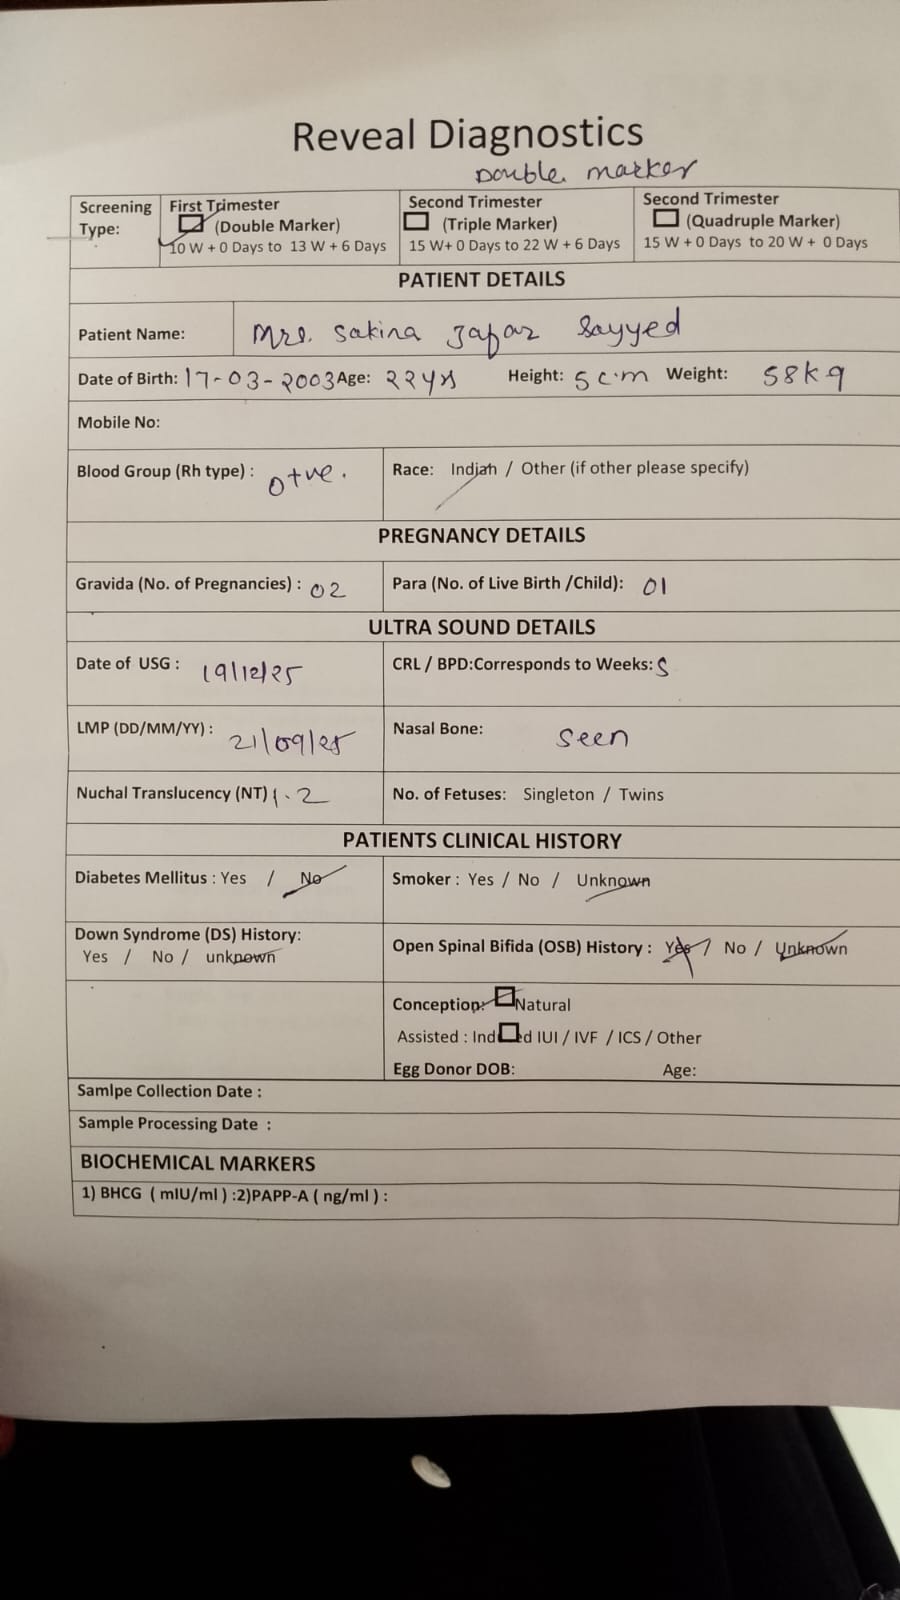 Reveal Diagnostics
Double marker
Screening Type: First Trimester (Double Marker) 10 W + 0 Days to 13 W + 6 Days
Second Trimester (Triple Marker) 15 W+ 0 Days to 22 W + 6 Days
Second Trimester (Quadruple Marker) 15 W + 0 Days to 20 W + 0 Days
PATIENT DETAILS
Patient Name: Mrs. Sakina Jafar Sayyed
Date of Birth: 17-03-2003 Age: 22yrs Height: 5 c.m Weight: 58kg
Mobile No:
Blood Group (Rh type) : O+ve.
Race: Indian / Other (if other please specify)
PREGNANCY DETAILS
Gravida (No. of Pregnancies) : 02
Para (No. of Live Birth /Child): 01
ULTRA SOUND DETAILS
Date of USG : 19/12/25
CRL / BPD:Corresponds to Weeks: S
LMP (DD/MM/YY) : 21/09/25
Nasal Bone: Seen
Nuchal Translucency (NT) 1.2
No. of Fetuses: Singleton / Twins
PATIENTS CLINICAL HISTORY
Diabetes Mellitus : Yes / No
Smoker : Yes / No / Unknown
Down Syndrome (DS) History:
Yes / No / unknown
Open Spinal Bifida (OSB) History : Yes / No / Unknown
Conception: Natural
Assisted : Ind d IUI / IVF / ICS / Other
Egg Donor DOB: Age:
Samlpe Collection Date :
Sample Processing Date :
BIOCHEMICAL MARKERS
1) BHCG ( mIU/ml ) :2)PAPP-A ( ng/ml ) :